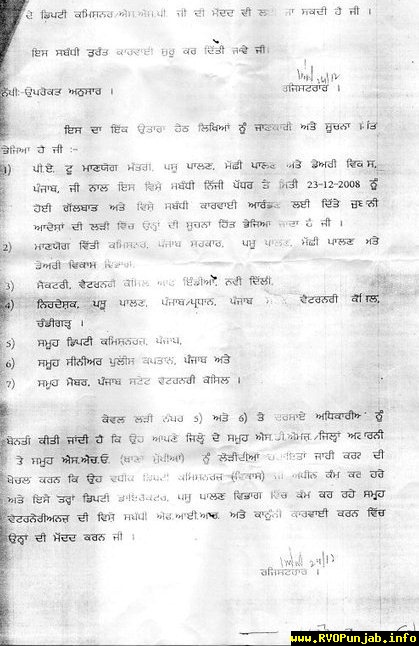 ਦੇ ਡਿਪਟੀ ਕਮਿਸ਼ਨਰ/ਐਸ.ਐਸ.ਪੀ. ਜੀ ਦੀ ਮੱਦਦ ਵੀ ਲਈ ਜਾ ਸਕਦੀ ਹੈ ਜੀ ।
ਇਸ ਸਬੰਧੀ ਤੁਰੰਤ ਕਾਰਵਾਈ ਸ਼ੁਰੂ ਕਰ ਦਿੱਤੀ ਜਾਵੇ ਜੀ।
24/12
ਰਜਿਸਟਰਾਰ ।
ਨੱਥੀ:-ਉਪਰੋਕਤ ਅਨੁਸਾਰ ।
ਇਸ ਦਾ ਇੱਕ ਉਤਾਰਾ ਹੇਠ ਲਿਖਿਆਂ ਨੂੰ ਜਾਣਕਾਰੀ ਅਤੇ ਸੂਚਨਾ ਹਿੱਤ
ਭੇਜਿਆ ਹੈ ਜੀ :-
1) ਪੀ.ਏ. ਟੂ ਮਾਣਯੋਗ ਮੰਤਰੀ, ਪਸ਼ੂ ਪਾਲਣ, ਮੱਛੀ ਪਾਲਣ ਅਤੇ ਡੇਅਰੀ ਵਿਕਾਸ,
ਪੰਜਾਬ, ਜੀ ਨਾਲ ਇਸ ਵਿਸ਼ੇ ਸਬੰਧੀ ਨਿੱਜੀ ਪੱਧਰ ਤੇ ਮਿਤੀ 23-12-2008 ਨੂੰ
ਹੋਈ ਗੱਲਬਾਤ ਅਤੇ ਵਿਸ਼ੇ ਸਬੰਧੀ ਕਾਰਵਾਈ ਆਰੰਭਣ ਲਈ ਦਿੱਤੇ ਜ਼ੁਬਾਨੀ
ਆਦੇਸ਼ਾਂ ਦੀ ਲੜੀ ਵਿੱਚ ਉਨ੍ਹਾਂ ਦੀ ਸੂਚਨਾ ਹਿੱਤ ਭੇਜਿਆ ਜਾਂਦਾ ਹੈ ਜੀ ।
2) ਮਾਣਯੋਗ ਵਿੱਤੀ ਕਮਿਸ਼ਨਰ, ਪੰਜਾਬ ਸਰਕਾਰ, ਪਸ਼ੂ ਪਾਲਣ, ਮੱਛੀ ਪਾਲਣ ਅਤੇ
ਡੇਅਰੀ ਵਿਕਾਸ ਵਿਭਾਗ।
3) ਸੈਕਟਰੀ, ਵੈਟਰਨਰੀ ਕੌਂਸਿਲ ਆਫ ਇੰਡੀਆ, ਨਵੀਂ ਦਿੱਲੀ.
4) ਨਿਰਦੇਸ਼ਕ, ਪਸ਼ੂ ਪਾਲਣ, ਪੰਜਾਬ/ਪ੍ਰਧਾਨ, ਪੰਜਾਬ ਵੈਟਰਨਰੀ ਕੌਂਸਿਲ,
ਚੰਡੀਗੜ੍ਹ ।
5) ਸਮੂਹ ਡਿਪਟੀ ਕਮਿਸ਼ਨਰਜ਼, ਪੰਜਾਬ,
6) ਸਮੂਹ ਸੀਨੀਅਰ ਪੁਲੀਸ ਕਪਤਾਨ, ਪੰਜਾਬ ਅਤੇ
7) ਸਮੂਹ ਮੈਂਬਰ, ਪੰਜਾਬ ਸਟੇਟ ਵੈਟਰਨਰੀ ਕੌਂਸਿਲ ।
ਕੇਵਲ ਲੜੀ ਨੰਬਰ 5) ਅਤੇ 6) ਤੇ ਦਰਸਾਏ ਅਧਿਕਾਰੀਆਂ ਨੂੰ
ਬੇਨਤੀ ਕੀਤੀ ਜਾਂਦੀ ਹੈ ਕਿ ਉਹ ਆਪਣੇ ਜਿਲ੍ਹੇ ਦੇ ਸਮੂਹ ਐਸ.ਡੀ.ਐਮਜ਼./ਜਿਲ੍ਹਾ ਅਟਾਰਨੀ
ਤੇ ਸਮੂਹ ਐਸ.ਐਚ.ਓ. (ਥਾਣਾ ਮੁਖੀਆਂ) ਨੂੰ ਲੋੜੀਂਦੀਆਂ ਹਦਾਇਤਾਂ ਜਾਰੀ ਕਰਨ ਦੀ
ਖੇਚਲ ਕਰਨ ਕਿ ਉਹ ਵਧੀਕ ਡਿਪਟੀ ਕਮਿਸ਼ਨਰਜ਼ (ਵਿਕਾਸ) ਦੇ ਅਧੀਨ ਕੰਮ ਕਰ ਰਹੇ
ਅਤੇ ਇਸੇ ਤਰ੍ਹਾਂ ਡਿਪਟੀ ਡਾਇਰੈਕਟਰ, ਪਸ਼ੂ ਪਾਲਣ ਵਿਭਾਗ ਵਿੱਚ ਕੰਮ ਕਰ ਰਹੇ ਸਮੂਹ
ਵੈਟਰਨੇਰੀਅਨਜ਼ ਦੀ ਵਿਸ਼ੇ ਸਬੰਧੀ ਐਫ.ਆਈ.ਆਰ. ਅਤੇ ਕਾਨੂੰਨੀ ਕਾਰਵਾਈ ਕਰਨ ਵਿੱਚ
ਉਨ੍ਹਾਂ ਦੀ ਮੱਦਦ ਕਰਨ ਜੀ ।
24/12
ਰਜਿਸਟਰਾਰ ।
www.RVOPunjab.info